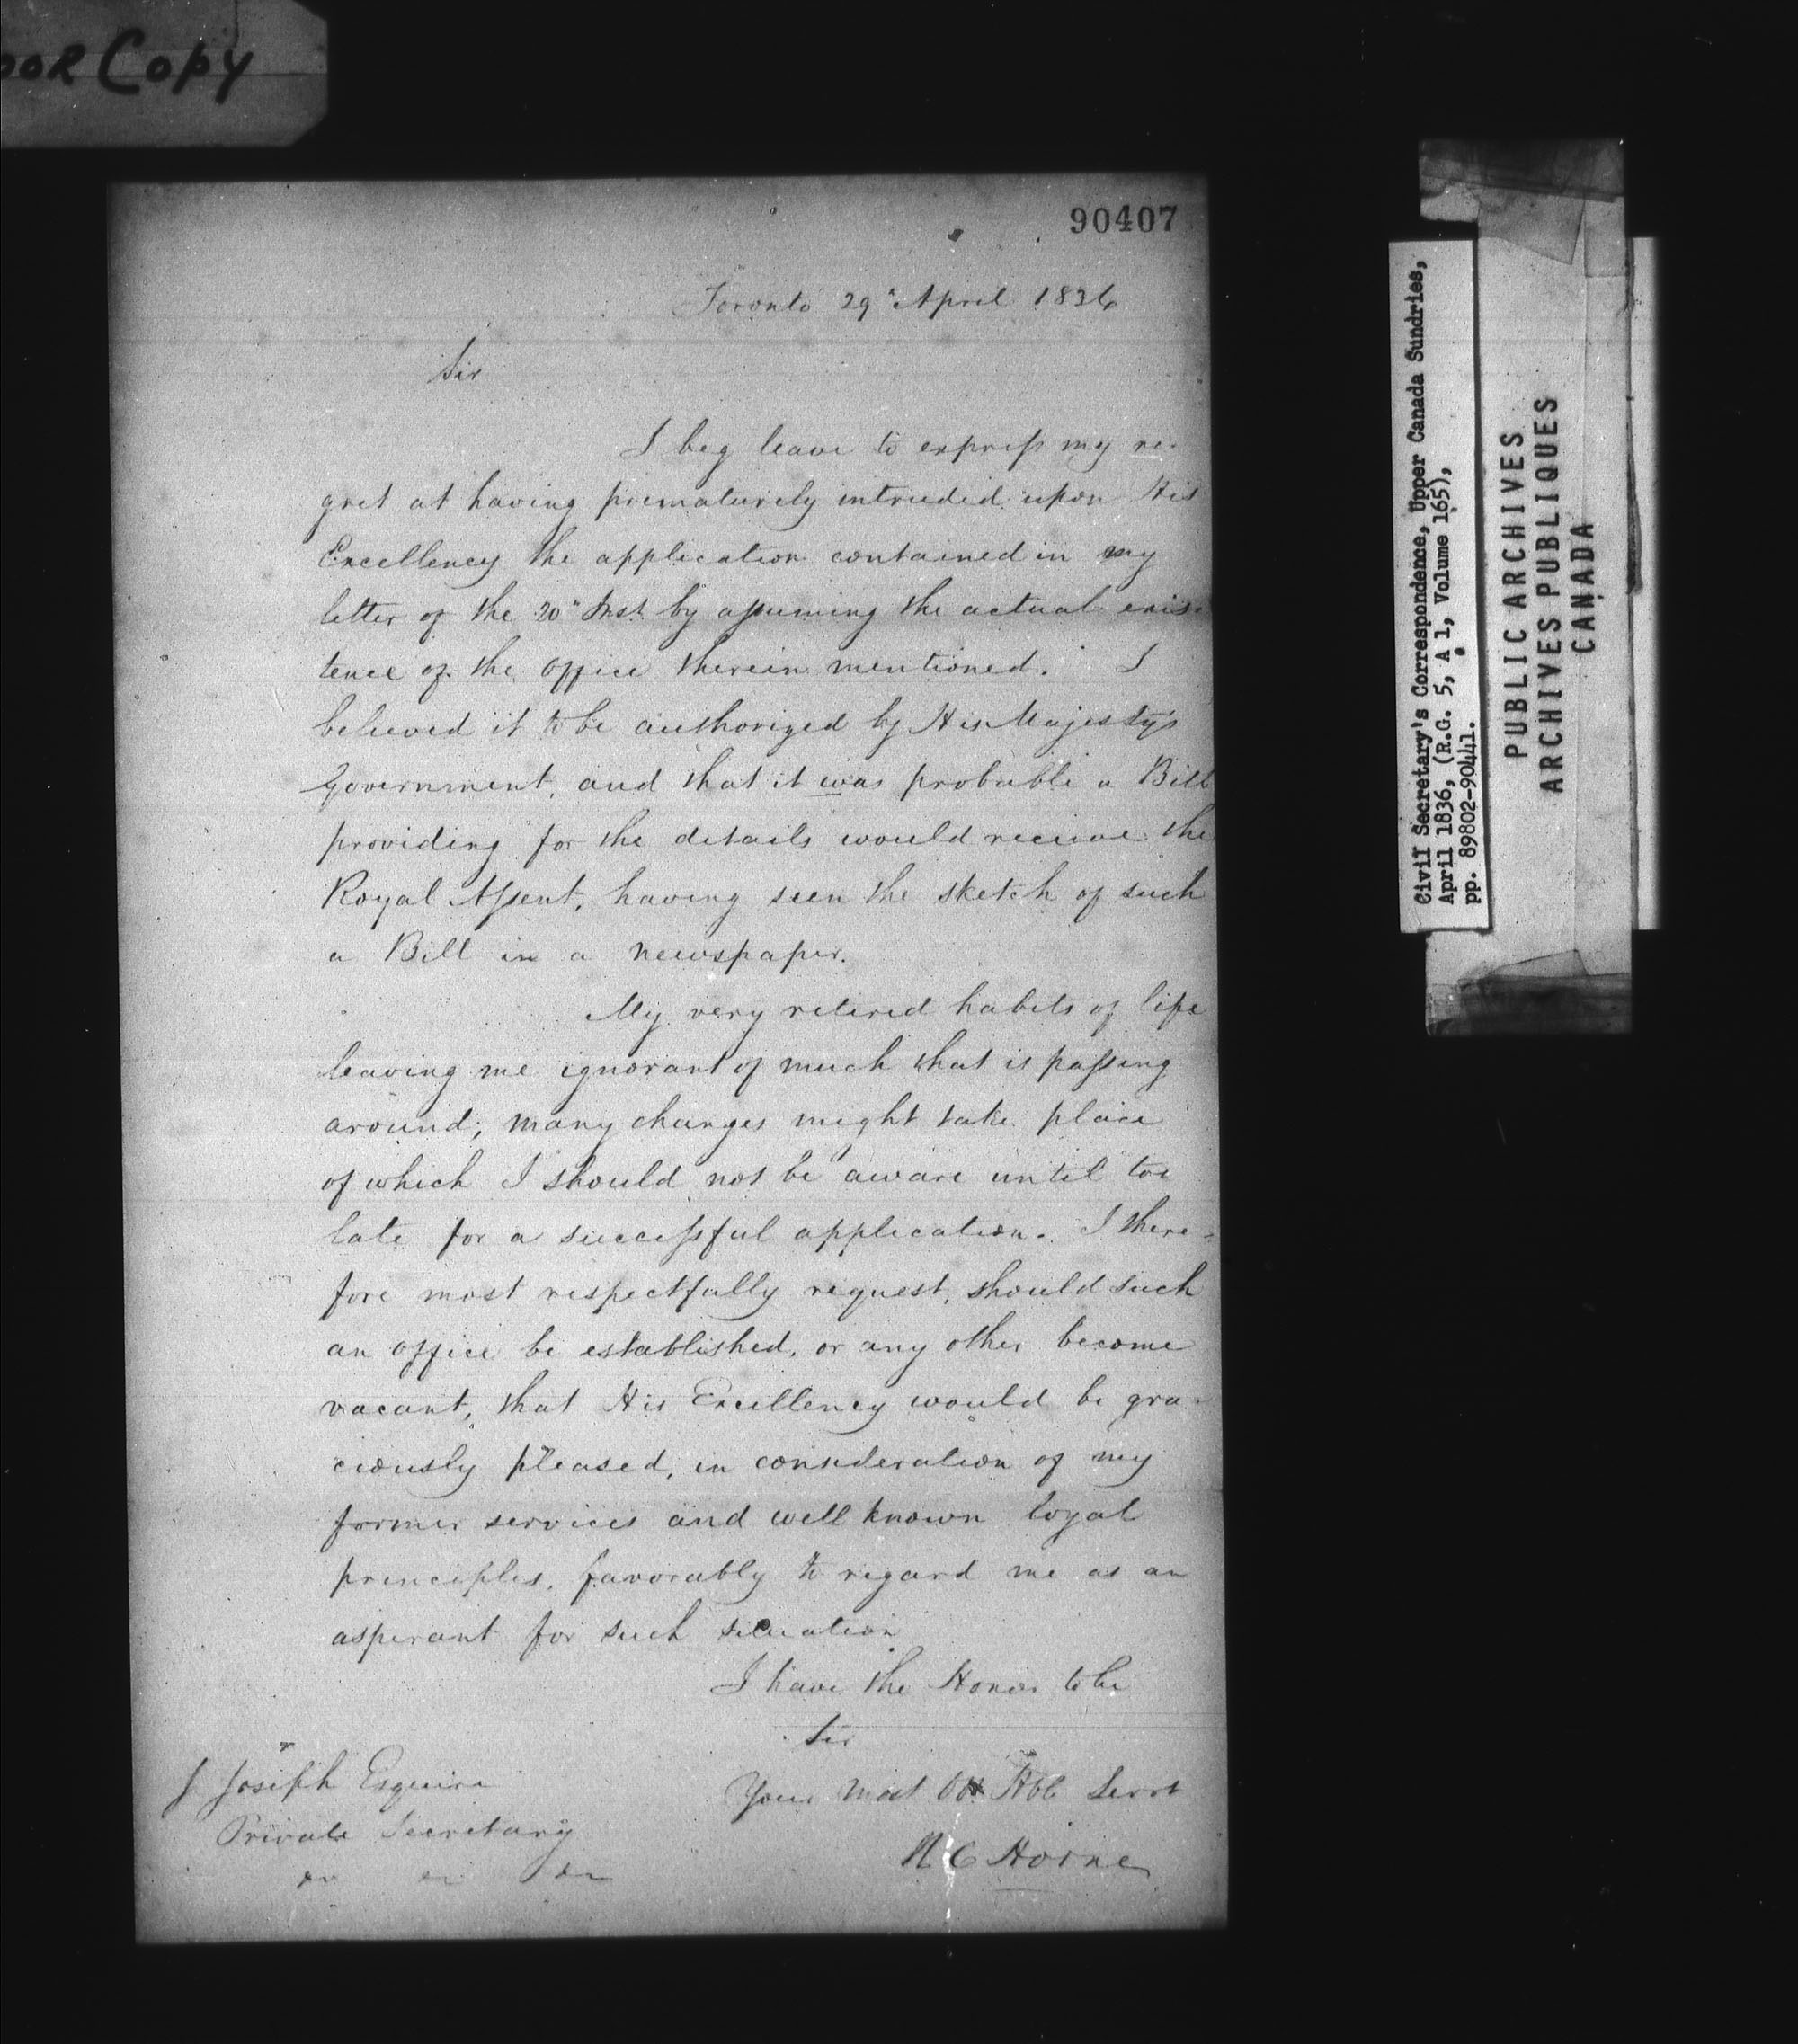 OOR COPY
90407
Toronto 29" April 1836
Sir
I beg leave to express my re-
gret at having prematurely intruded upon His
Excellency the application contained in my
letter of the 20" Inst. by assuming the actual exis-
tence of the office therein mentioned. I
believed it to be authorized by His Majesty's
Government, and that it was probable a Bill
providing for the details would receive the
Royal Assent, having seen the sketch of such
a Bill in a newspaper.
My very retired habits of life
leaving me ignorant of much that is passing
around; many changes might take place
of which I should not be aware until too
late for a successful application. I there-
fore most respectfully request, should such
an office be established, or any other become
vacant, that His Excellency would be gra-
ciously pleased, in consideration of my
former services and well known loyal
principles, favorably to regard me as an
aspirant for such situation
I have the Honor to be
Sir
Your most Hble Servt
Horne
J Joseph Esquire
Private Secretary
Civil Secretary's Correspondence, Upper Canada Sundries,
April 1836, (R.G. 5, A 1, Volume 165),
pp. 89802-90441.
PUBLIC ARCHIVES
ARCHIVES PUBLIQUES
CANADA